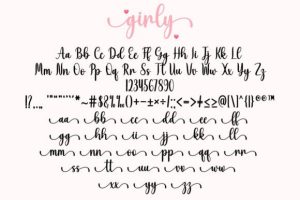 girly
Aa Bb Cc Dd Ee Ff Gg Hh Ii Jj Kk Ll
Mm Nn Oo Pp Qq Rr Ss Tt Uu Vv Ww Xx Yy Zz
1234567890
aa bb cc dd ee ff
gg hh ii jj kk ll
mm nn oo pp qq rr
ss tt uu vv ww
xx yy zz